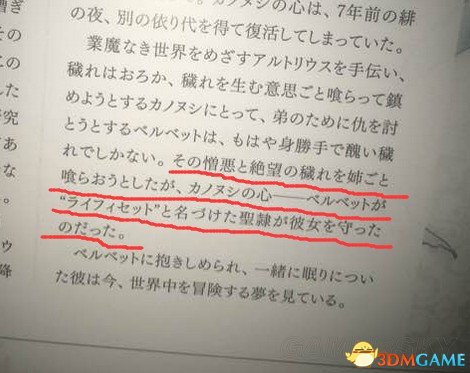 の夜、別の依り代を得て復活してしまっていた。
業魔なき世界をめざすアルトリウスを手伝い、
穢れはおろか、穢れを生む意思ごと喰らって鎮
めようとするカノヌシにとって、弟のために仇を討
とうとするベルベットは、もはや身勝手で醜い穢
れでしかない。その憎悪と絶望の穢れを姉ごと
喰らおうとしたが、カノヌシの心――ベルベットが
“ライフィセット”と名づけた聖隷が彼女を守った
のだった。
ベルベットに抱きしめられ、一緒に眠りについ
た彼は今、世界中を冒険する夢を見ている。
3DMGAME